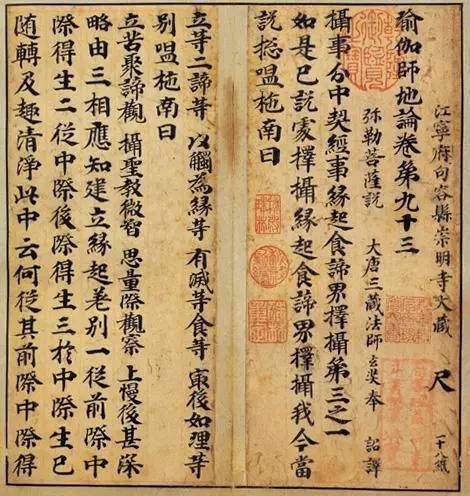 江寧府句容縣崇明寺大藏 尺 一十八紙
瑜伽師地論卷第九十三
彌勒菩薩說 大唐三藏法師玄奘奉 詔譯
攝事分中契經事緣起食諦界擇攝第三之一
如是已說處擇攝緣起食諦界擇攝我今當
說揔嗢柂南曰
立等二諦等 以觸為緣等 有滅等食等 㝡後如理等
別嗢柂南曰
立苦聚諦觀 攝聖教微智 思量際觀察 上慢後甚深
略由三相應知建立緣起差別一從前際中
際得生二從中際後際得生三於中際生已
随轉及趣清淨此中云何從其前際中際得